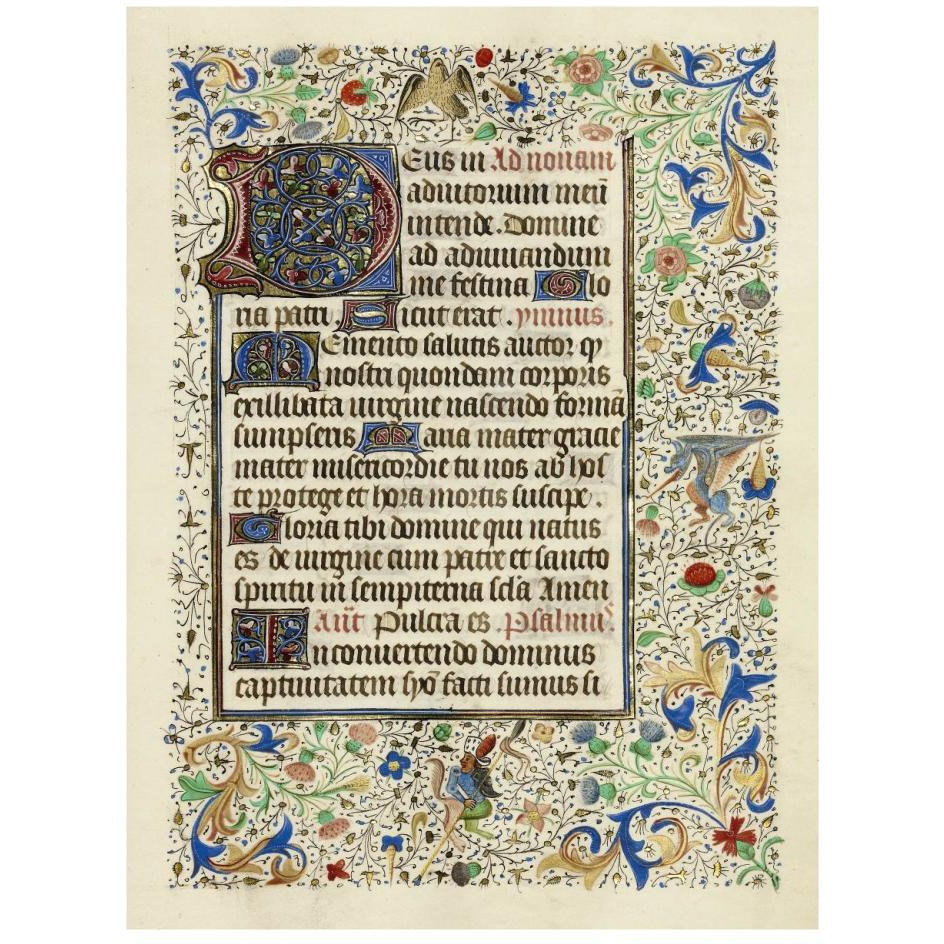 Deus in Ad nonam
adiutorium meũ
intende. Domine
ad adiuuandum
me festina Glo
ria patri. Sicut erat. ymnus.
Memento salutis auctor qͥ
nostri quondam corporis
exillibata uirgine nascendo formã
sumpseris Maria mater gracie
mater misericordie tu nos ab hos
te protege et hora mortis suscipe.
Gloria tibi domine qui natus
es de uirgine cum patre et sancto
spiritu in sempiterna scľa Amen
añt Pulcra es. Psalmus.
In conuertendo dominus
captiuitatem syõ facti sumus si